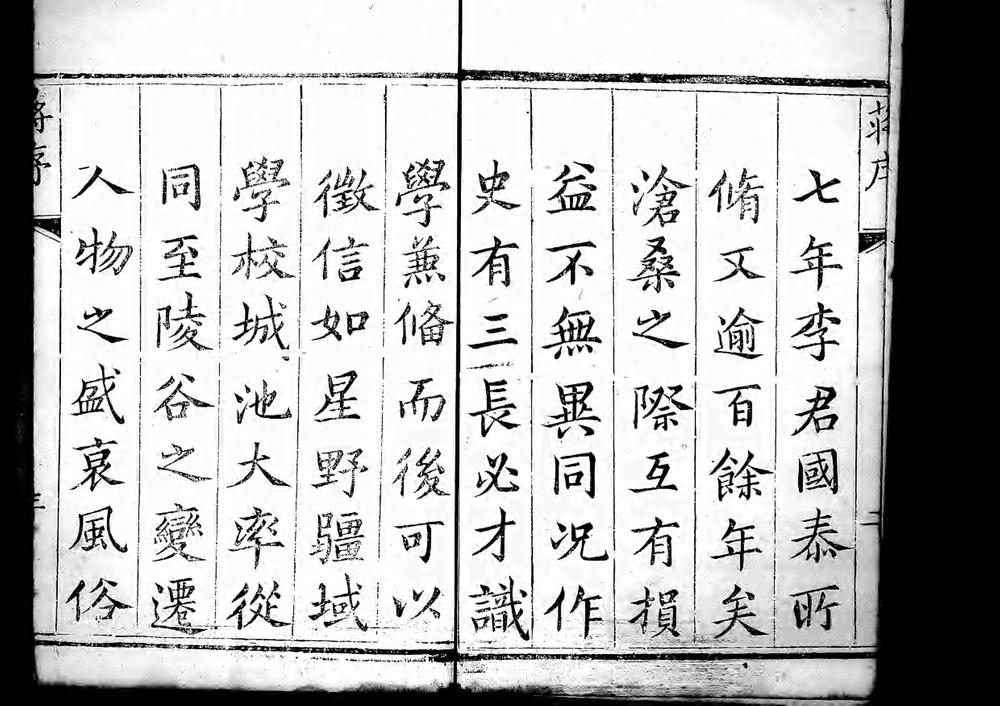 蔣序
七年李君國泰所
脩又逾百餘年矣
滄桑之際互有損
益不無異同况作
史有三長必才識
學兼俻而後可以
徵信如星野疆域
學校城池大率從
同至陵谷之變遷
人物之盛衰風俗
蔣序
三